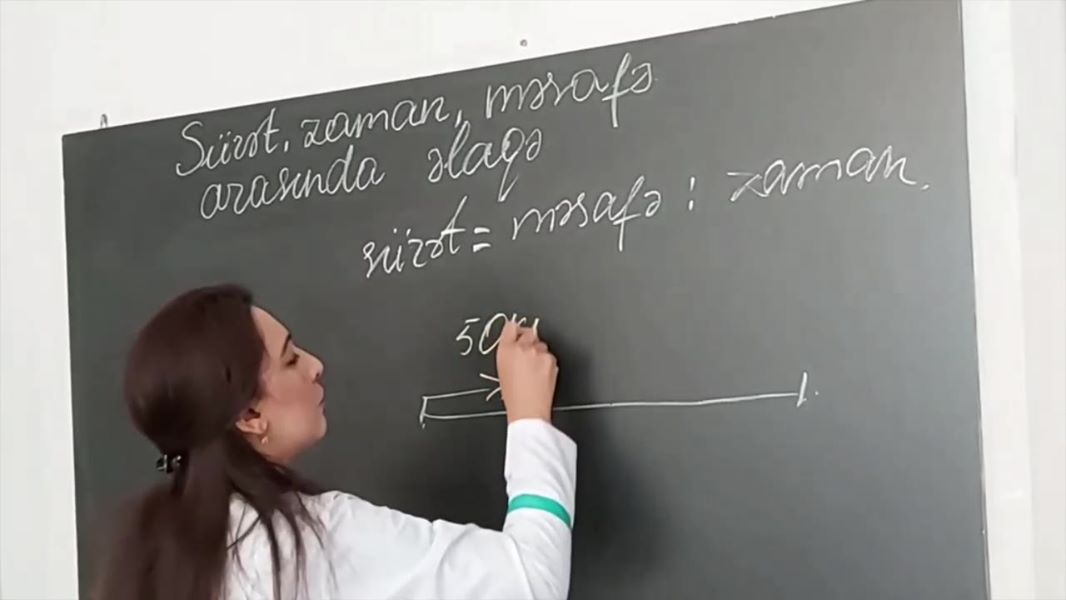 Sürət, zaman, məsafə
arasında əlaqə
sürət = məsafə : zaman.
50